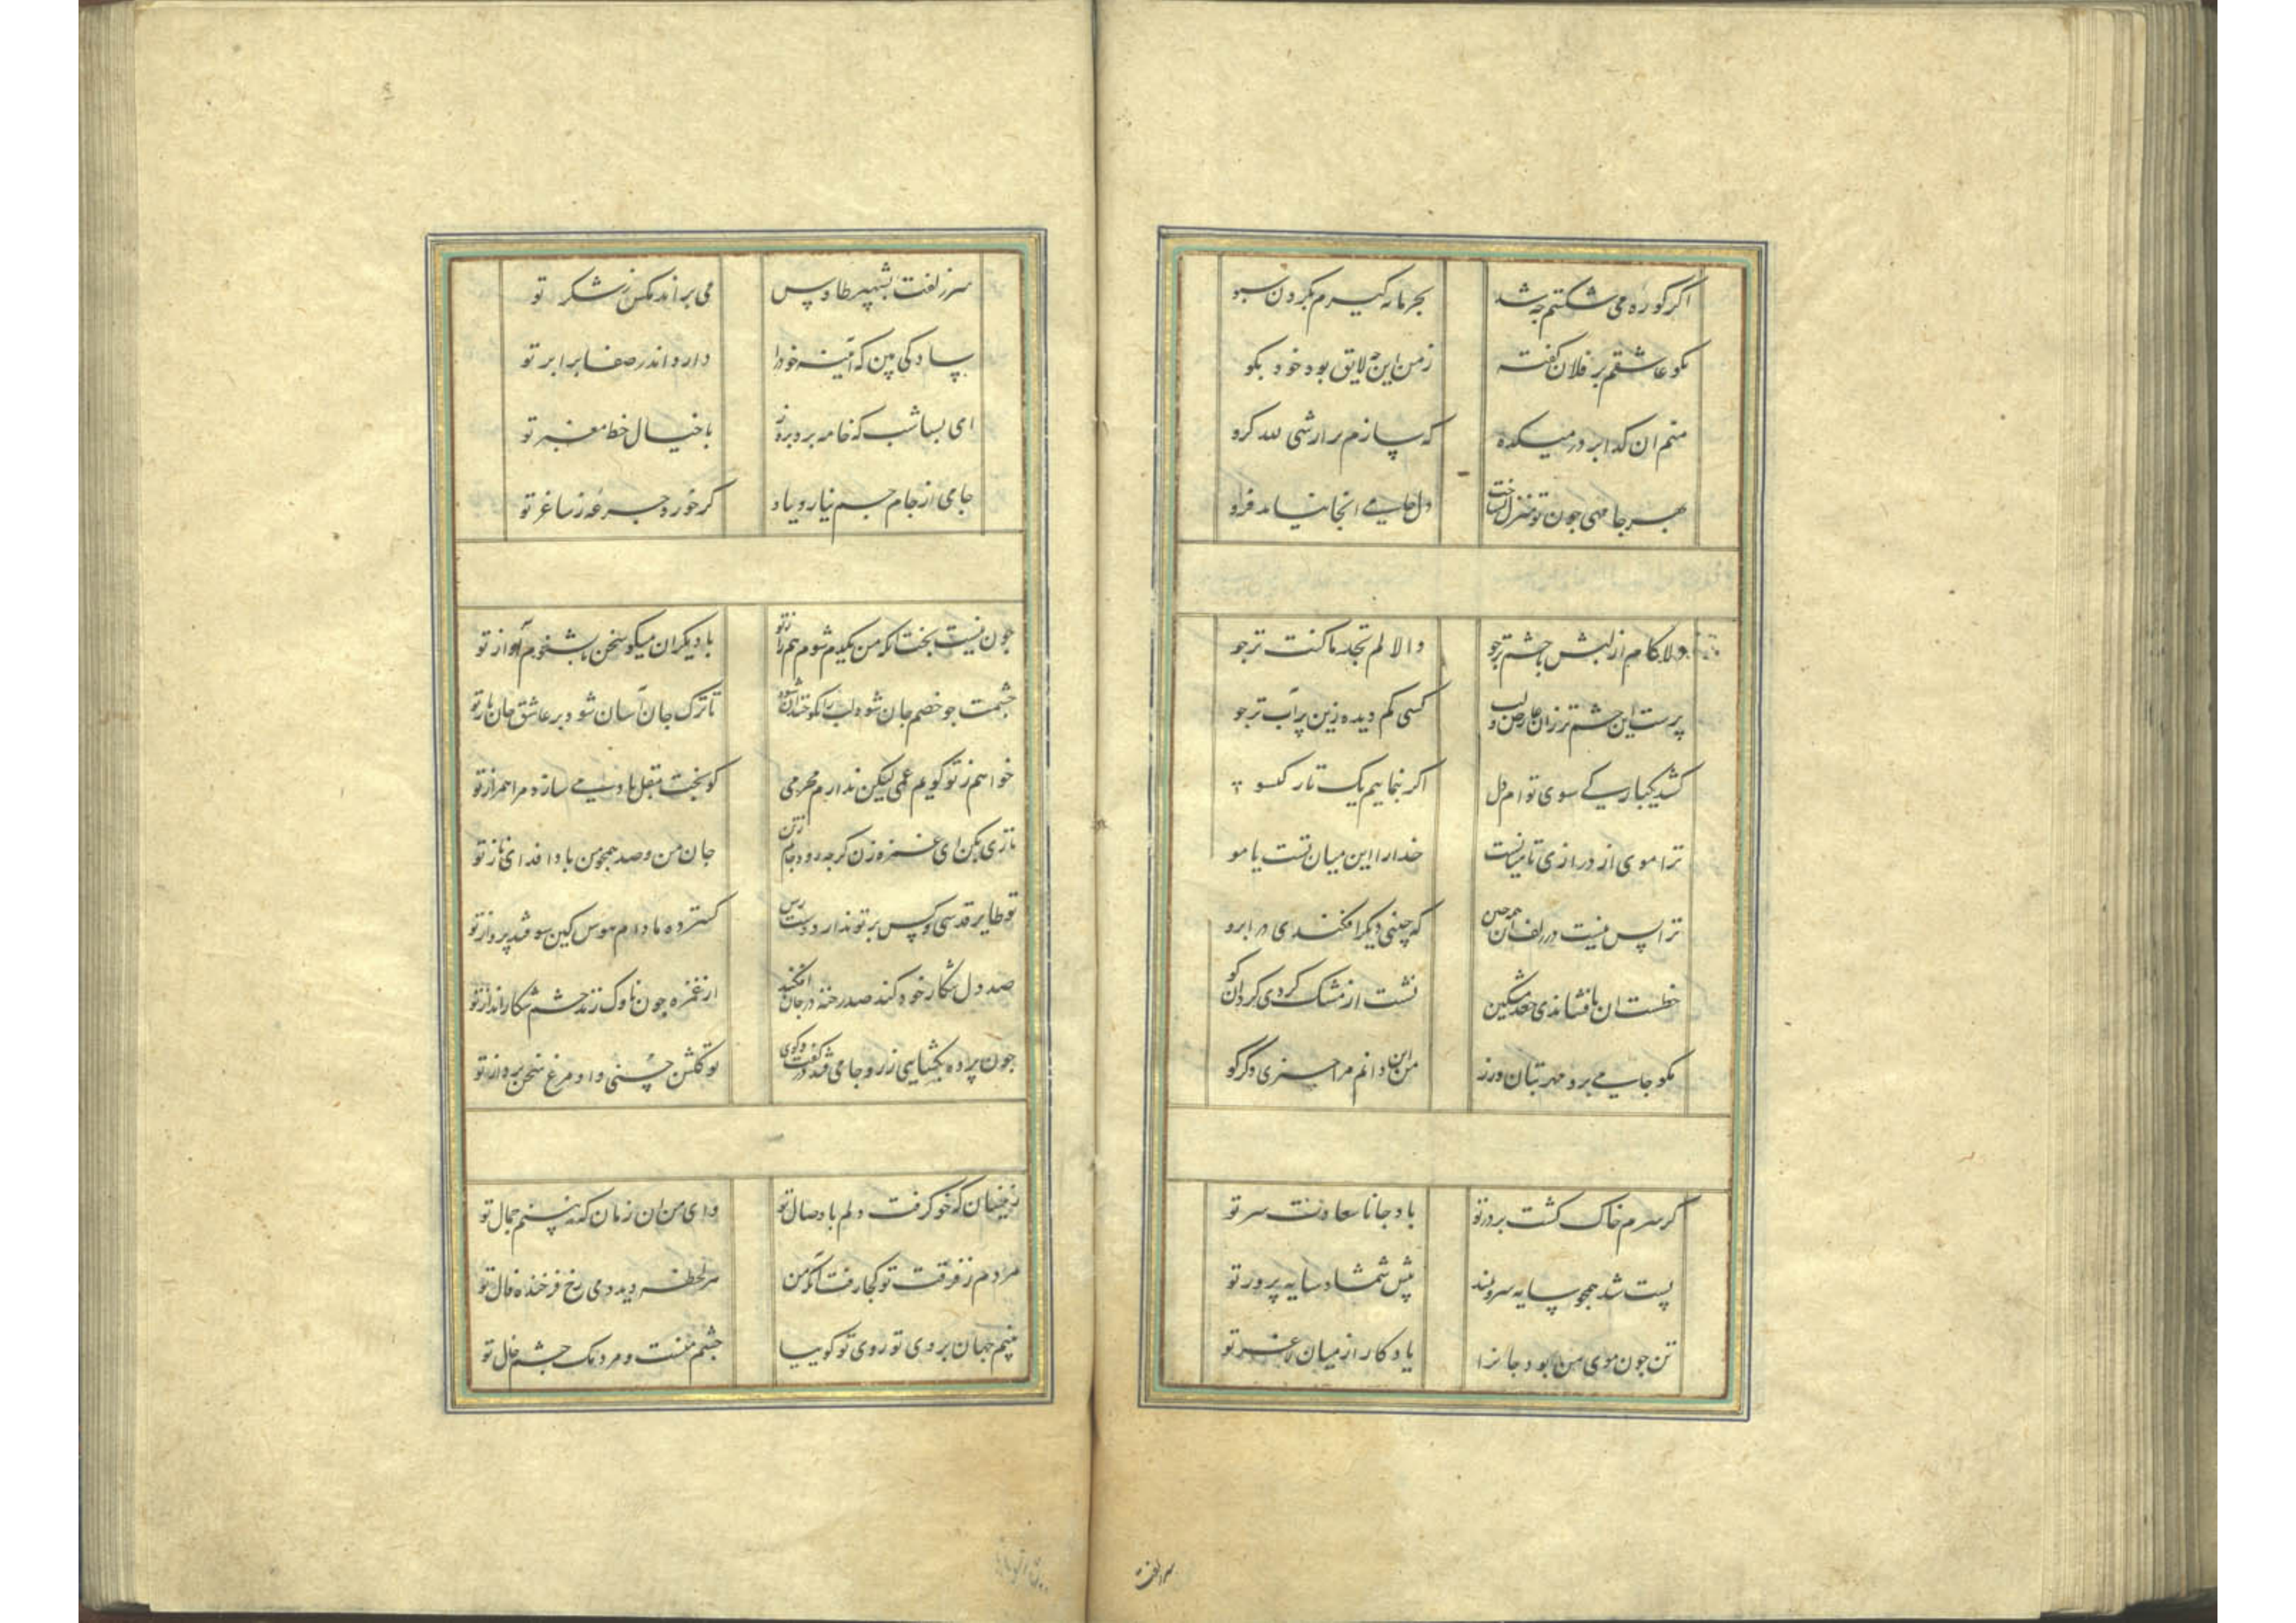 اگر کوزه می شکستم چه شد
بجرمانه گیرم بگردن سبو
مگو عاشقم بر فلان گفته
ز من این چه لایق بود خود بگو
منم ان گدا بر در میکده
که سازم ردا رشی لله کرو
بهر جا مهی چون تو منزل ساخت
دل جامی انجا نیامد فرو
دلا کام از لبش با چشم تر جو
والا لم تجد ما کنت ترجو
پرست این چشم تر زان عارض و لب
کسی کم دیده زین پر آب تر جو
کشد یکبارگی سوی توام دل
اگر بنماییم یک تار گیسو
ترا موی از درازی تا میانست
خدا را این میان تست یا مو
ترا بس نیست در زلف آن همه چین
که چینی دیگر افکندی در ابرو
خطست ان یا فشاندی جعد مشکین
نشست از مشک گردی گرد ان رو
مگو جامی برو مهر بتان ورز
من این دانم مرا چیزی دگر گو
گر سرم خاک گشت بر در تو
باد جانا سعادت سر تو
پست شد همچو سایه سرو بلند
پیش شمشاد سایه پرور تو
تن چون موی من بود جانرا
یادگار از میان لاغر تو
سر زلفت
سر زلفت بشهپر طاوس
می براند مگس ز شکر تو
سادگی بین که آینه خود را
دارد اندر صفا برابر تو
ای بسا شب که خامه برد بروز
با خیال خط معنبر تو
جامی از جام جم نیارد یاد
گر خورد جرعه ز ساغر تو
چون نیست بخت انکه من یکدم شوم همراز تو
با دیگران میگو سخن تا بشنوم آواز تو
چشمت چو خصم جان شود لب را بگو خندان شود
تا ترک جان آسان شود بر عاشق جان باز تو
خواهم ز تو گویم غمی لیکن ندارم محرمی
کو بخت مقبل تا دمی سازد مرا همراز تو
نازی بکن ای غمزه زن گرچه رود جانم ز تن
جان من و صد همچو من بادا فدای ناز تو
تو طایر قدسی و کس بر تو ندارد دست رس
گسترده ما دام هوس کین سو فتد پرواز تو
صد دل شکار خود کند صد رخنه در جان افکند
از غمزه چون ناوک زند چشم شکارانداز تو
چون پرده بگشایی ز رو جامی فتد در گفت و گوی
تو گلشن حسنی و او مرغ سخن پرداز تو
زینسان که خو گرفت دلم با وصال تو
وای من ان زمان که نبینم جمال تو
مردم ز فرقت تو کجا رفت آنکه من
هر لحظه دیدمی رخ فرخنده فال تو
بینم جهان بروی تو روی تو گوییا
چشم منست و مردمک چشم خال تو